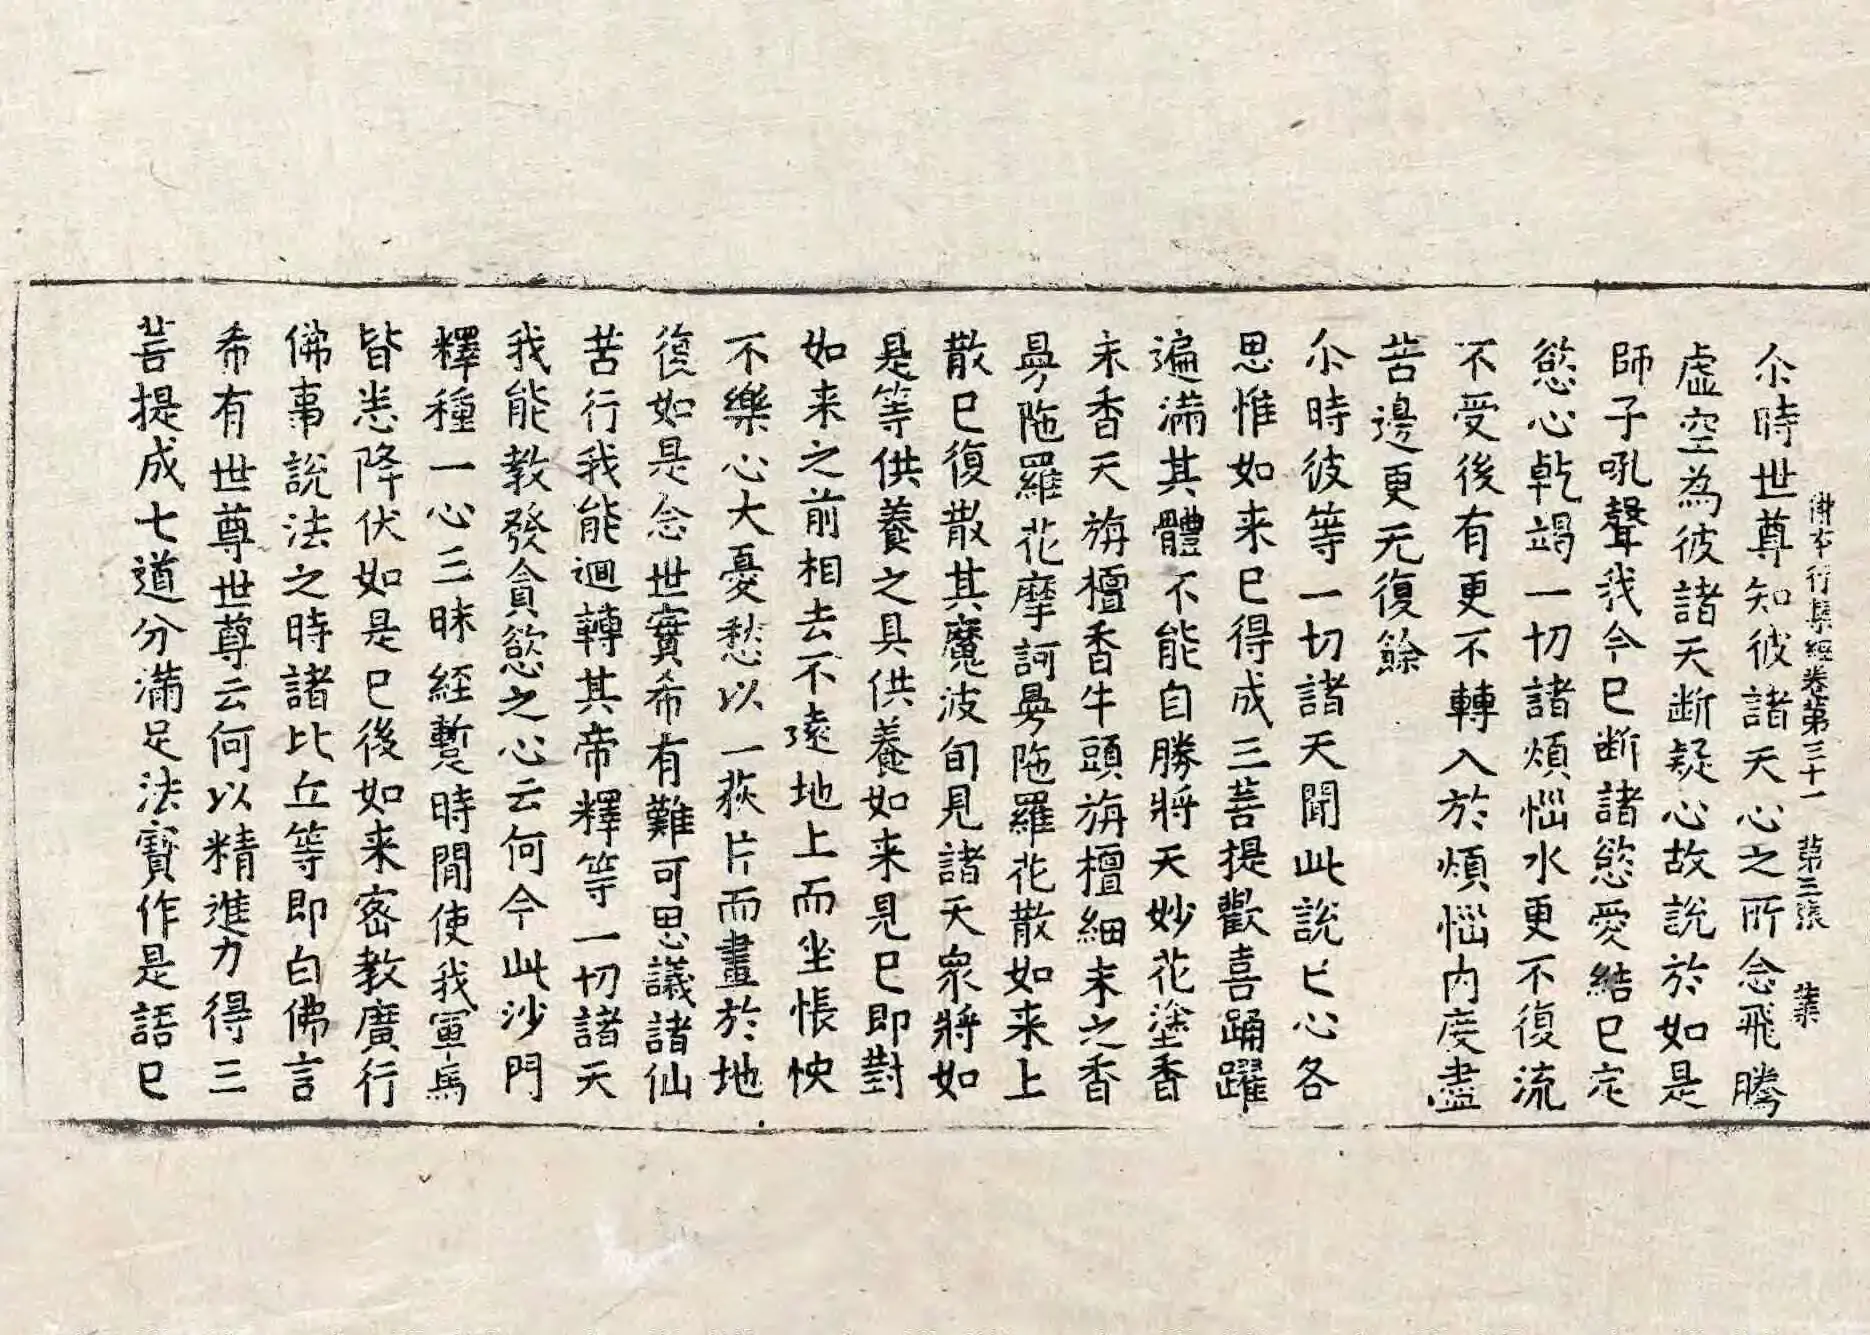 佛本行集經卷第三十一　第三張　業
尒時世尊知彼諸天心之所念飛騰
虛空為彼諸天断疑心故說於如是
師子吼聲我今已断諸慾愛結已㝎
慾心乹竭一切諸煩惱水更不復流
不受後有更不轉入於煩惱内度盡
苦邊更无復餘
尒時彼等一切諸天聞此說已心各
思惟如来已得成三菩提歡喜踊躍
遍滿其體不能自勝將天妙花塗香
末香天旃檀香牛頭旃檀細末之香
曼陁羅花摩訶曼陁羅花散如来上
散已復散其魔波旬見諸天衆將如
是等供養之具供養如来見已即對
如来之前相去不遠地上而坐悵怏
不樂心大憂愁以一荻片而畫於地
復如是念世實希有難可思議諸仙
苦行我能迴轉其帝釋等一切諸天
我能教發貪慾之心云何今此沙門
釋種一心三昧経暫時間使我軍馬
皆悉降伏如是已後如来宻教廣行
佛事說法之時諸比丘等即白佛言
希有世尊世尊云何以精進力得三
菩提成七道分滿足法寳作是語已